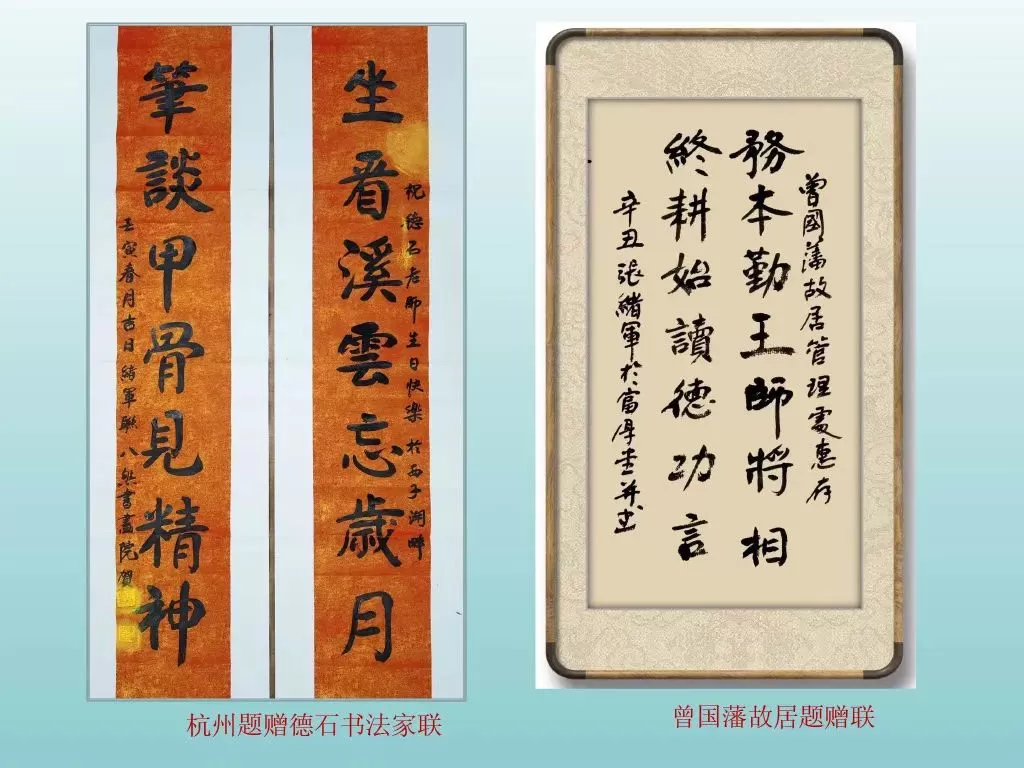 坐看溪雲忘歲月
祝德石老師生日快樂於西子湖畔
筆談甲骨見精神
壬寅春月吉日緒軍聯八無書畫院賀
杭州题赠德石书法家联
曾國藩故居管理處惠存
務本勤王師將相
終耕始讀德功言
辛丑張緒軍於富厚堂並書
曾国藩故居题赠联